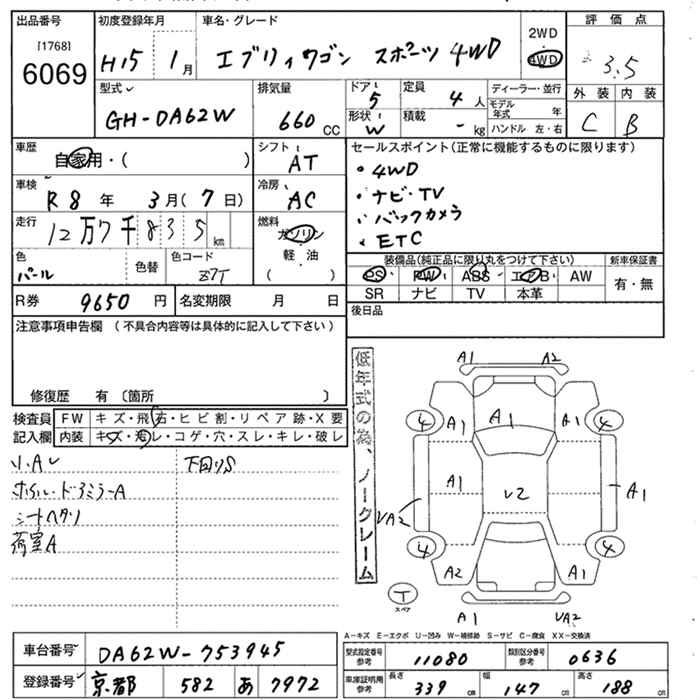 出品番号
[1768]
6069
初度登録年月
H15 1月
車名・グレード
エブリィワゴン スポーツ 4WD
2WD
4WD
評価点
3.5
外装 内装
C B
型式
GH-DA62W
排気量
660 CC
ドア
5
定員
4 人
形状
W
積載
- kg
ディーラー・並行
モデル年式 年
ハンドル 左・右
車歴
自家用・( )
シフト
AT
車検
R8 年 3月(7日)
冷房
AC
走行
12万7千835 km
燃料
ガソリン
軽油
( )
色
パール
色替
色コード
Z7T
R券 9650 円
名変期限 月 日
セールスポイント(正常に機能するものに限ります)
・4WD
・ナビ・TV
・バックカメラ
・ETC
装備品(純正品に限り丸をつけて下さい)
PS PW ABS エアB AW
SR ナビ TV 本革
新車保証書
有・無
後日品
注意事項申告欄 (不具合内容等は具体的に記入して下さい)
修復歴 有 〔箇所 〕
検査員記入欄
FW キズ・飛石・ヒビ割・リペア跡・X要
内装 キズ・汚レ・コゲ・穴・スレ・キレ・破レ
下回りS
ホイル・ドアミラーA
シートヘタリ
荷室A
低年式の為、ノークレーム
A1 A2
4 A1 A1 A1 4
A1 U2 A1
UA2
4 A2 A1 4
T
スペア
A1 UA2
A-キズ E-エクボ U-凹み W-補修跡 S-サビ C-腐食 XX-交換済
車台番号 DA62W-753945
登録番号 京都 582 あ 7972
型式指定番号 参考 11080
類別区分番号 参考 0636
車庫証明用 参考
長さ 339 cm
幅 147 cm
高さ 188 cm